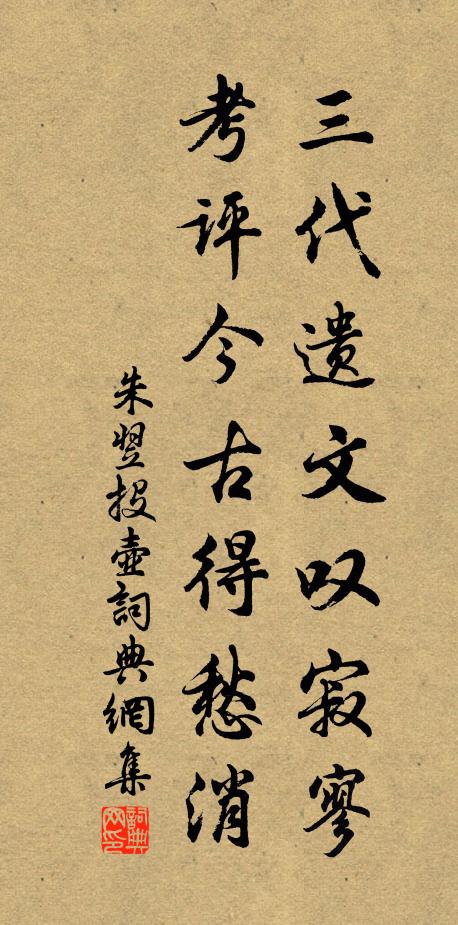 三代遗文叹寂寥
考评今古得愁消
朱翌投壶詞典網集
詞典网印